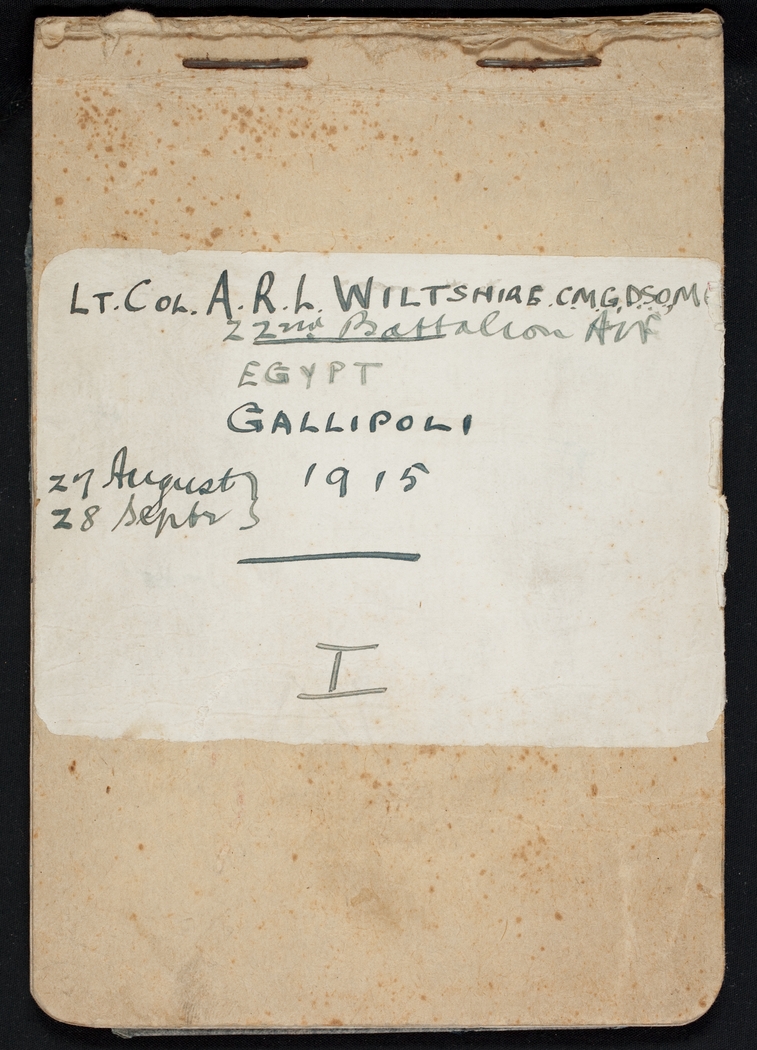 LT. COL. A. R. L. WILTSHIRE. C.M.G, D.S.O, M
22nd Battalion AIF
EGYPT
GALLIPOLI
27 August } 1915
28 Septr }
I